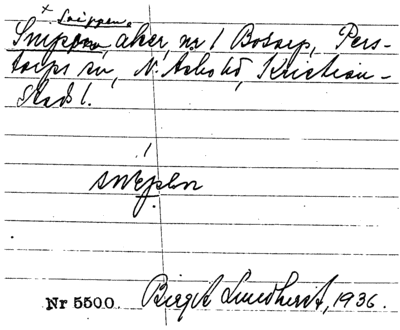 x Snippen.
Snippen, åker, nr 1 Bosarp, Pers-
torps sn, N. Åsbo hd, Kristian-
stads l.
snepən
Nr 5500. Birgit Lundkvist, 1936.